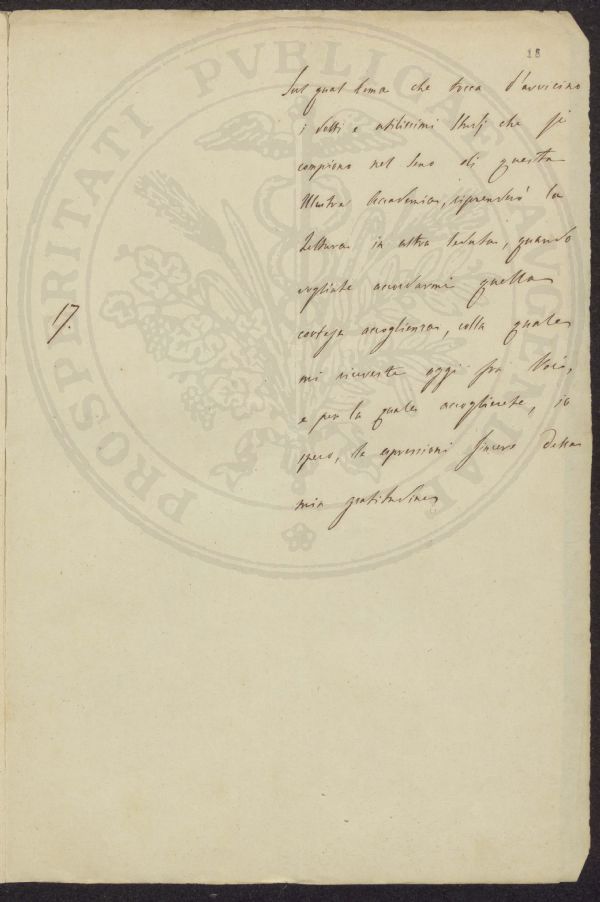 18
Sul qual tema che tocca d'avvicino
i dotti e utilissimi Studj che si
compiono nel seno di questa
Illustre Accademia, riprenderò la
Lettura in altra seduta, quando
vogliate accordarmi quella
cortese accoglienza, colla quale
mi riceveste oggi fra Voi,
e per la quale accoglierete, io
spero, le espressioni sincere della
mia gratitudine
17.
PROSPERITATI PVBLICAE AVGENDAE